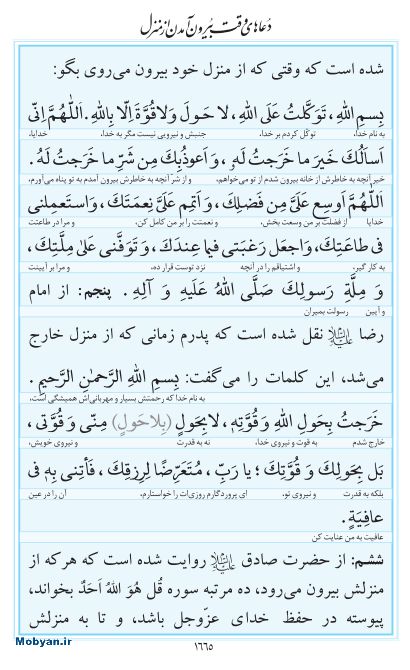 دعاهای وقت بیرون آمدن از منزل
شده است که وقتی که از منزل خود بیرون می‌روی بگو:
بِسمِ اللهِ، تَوَکَّلتُ عَلَی اللهِ، لاحَولَ وَلاقُوَّةَ اِلّا بِاللهِ. اَللّٰهُمَّ اِنّی
به نام خدا، توکّل کردم بر خدا، جنبش و نیرویی نیست مگر به خدا، خدایا،
اَسأَلُکَ خَیرَ ما خَرَجتُ لَهُ، وَ اَعوذُ بِکَ مِن شَرِّ ما خَرَجتُ لَهُ.
خیر آنچه به خاطرش از خانه بیرون شدم از تو می‌خواهم، و از شرّ آنچه به خاطرش بیرون آمدم به تو پناه می‌آورم،
اَللّٰهُمَّ اَوسِع عَلَیَّ مِن فَضلِکَ، وَ اَتمِم عَلَیَّ نِعمَتَکَ، وَاستَعمِلنی
خدایا از فضلت بر من وسعت بخش، و نعمتت را بر من کامل کن، و مرا در طاعتت
فی طاعَتِکَ، وَاجعَل رَغبَتی فیما عِندَکَ، وَ تَوَفَّنی عَلیٰ مِلَّتِکَ،
به کار گیر، و اشتیاقم را در آنچه نزد توست قرار ده، و مرا بر آیینت
وَ مِلَّةِ رَسولِکَ صَلَّی اللهُ عَلَیهِ وَ آلِهِ. پنجم: از امام
و آیین رسولت بمیران
رضا علیه‌السلام نقل شده است که پدرم زمانی که از منزل خارج
می‌شد، این کلمات را می‌گفت: بِسمِ اللهِ الرَّحمٰنِ الرَّحیمِ.
به نام خدا که رحمتش بسیار و مهربانی‌اش همیشگی است،
خَرَجتُ بِحَولِ اللهِ وَ قُوَّتِهِ، لابِحَولٍ (بِلاحَولٍ) مِنّی وَ قُوَّتی،
خارج شدم به قوت و نیروی خدا، نه به قدرت و نیروی خویش،
بَل بِحَولِکَ وَ قُوَّتِکَ؛ یا رَبِّ، مُتَعَرِّضًا لِرِزقِکَ، فَأتِنی بِهٖ فی
بلکه به قدرت و نیروی تو، ای پروردگارم روزی‌ات را خواستارم، آن را در عین
عافِیَةٍ.
عافیت به من عنایت کن
ششم: از حضرت صادق علیه‌السلام روایت شده است که هرکه از
منزلش بیرون می‌رود، ده مرتبه سوره قُل هُوَ اللهُ اَحَدٌ بخواند،
پیوسته در حفظ خدای عزّوجل باشد، و تا به منزلش
۱۶۶۵
Mobyan.ir